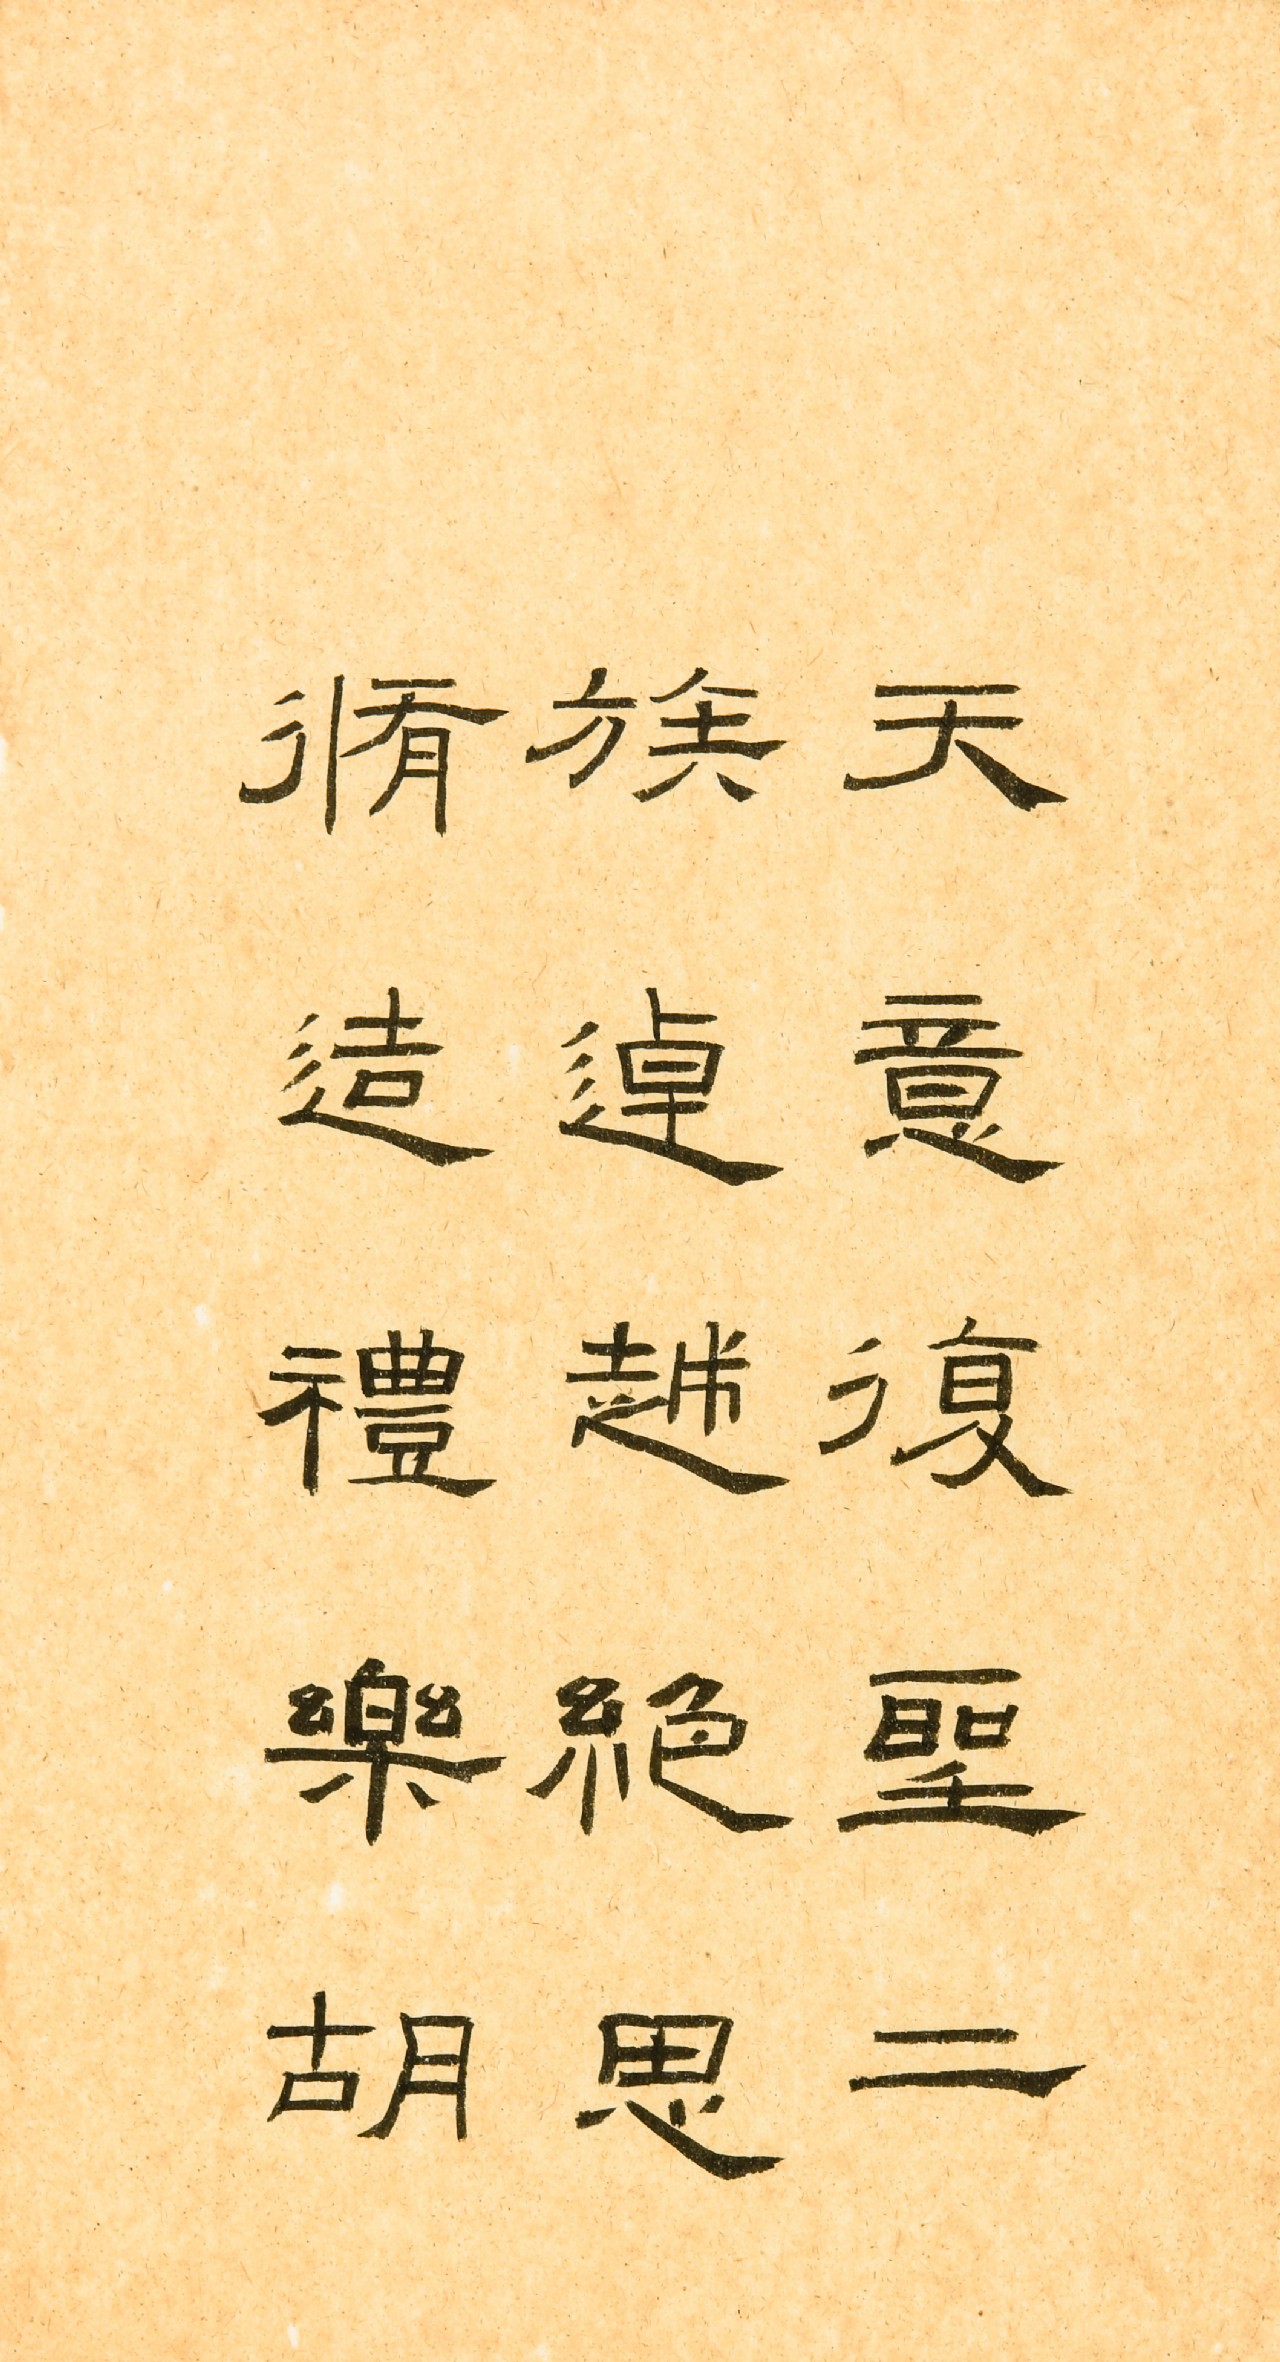 天意復聖二
族逴越絶思
脩造禮樂胡